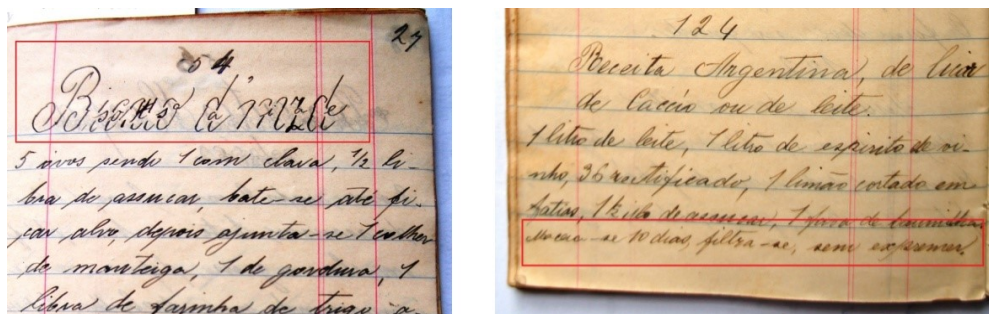 27
54
5 ovos sendo 1 com clara, 1/2 li-
bra de assucar, bate-se até fi-
car alvo, depois ajunta-se 1 colher
de manteiga, 1 de gordura, 1
libra de farinha de trigo a-
124
Receita Argentina, de licor
de Caccáo ou de leite.
1 litro de leite, 1 litro de espirito de vi-
nho, 36 rectificado, 1 limão cortado em
fatias, 1 kilo de assucar, 1 fava de baunilha.
Macera-se 10 dias, filtra-se, sem expremer.